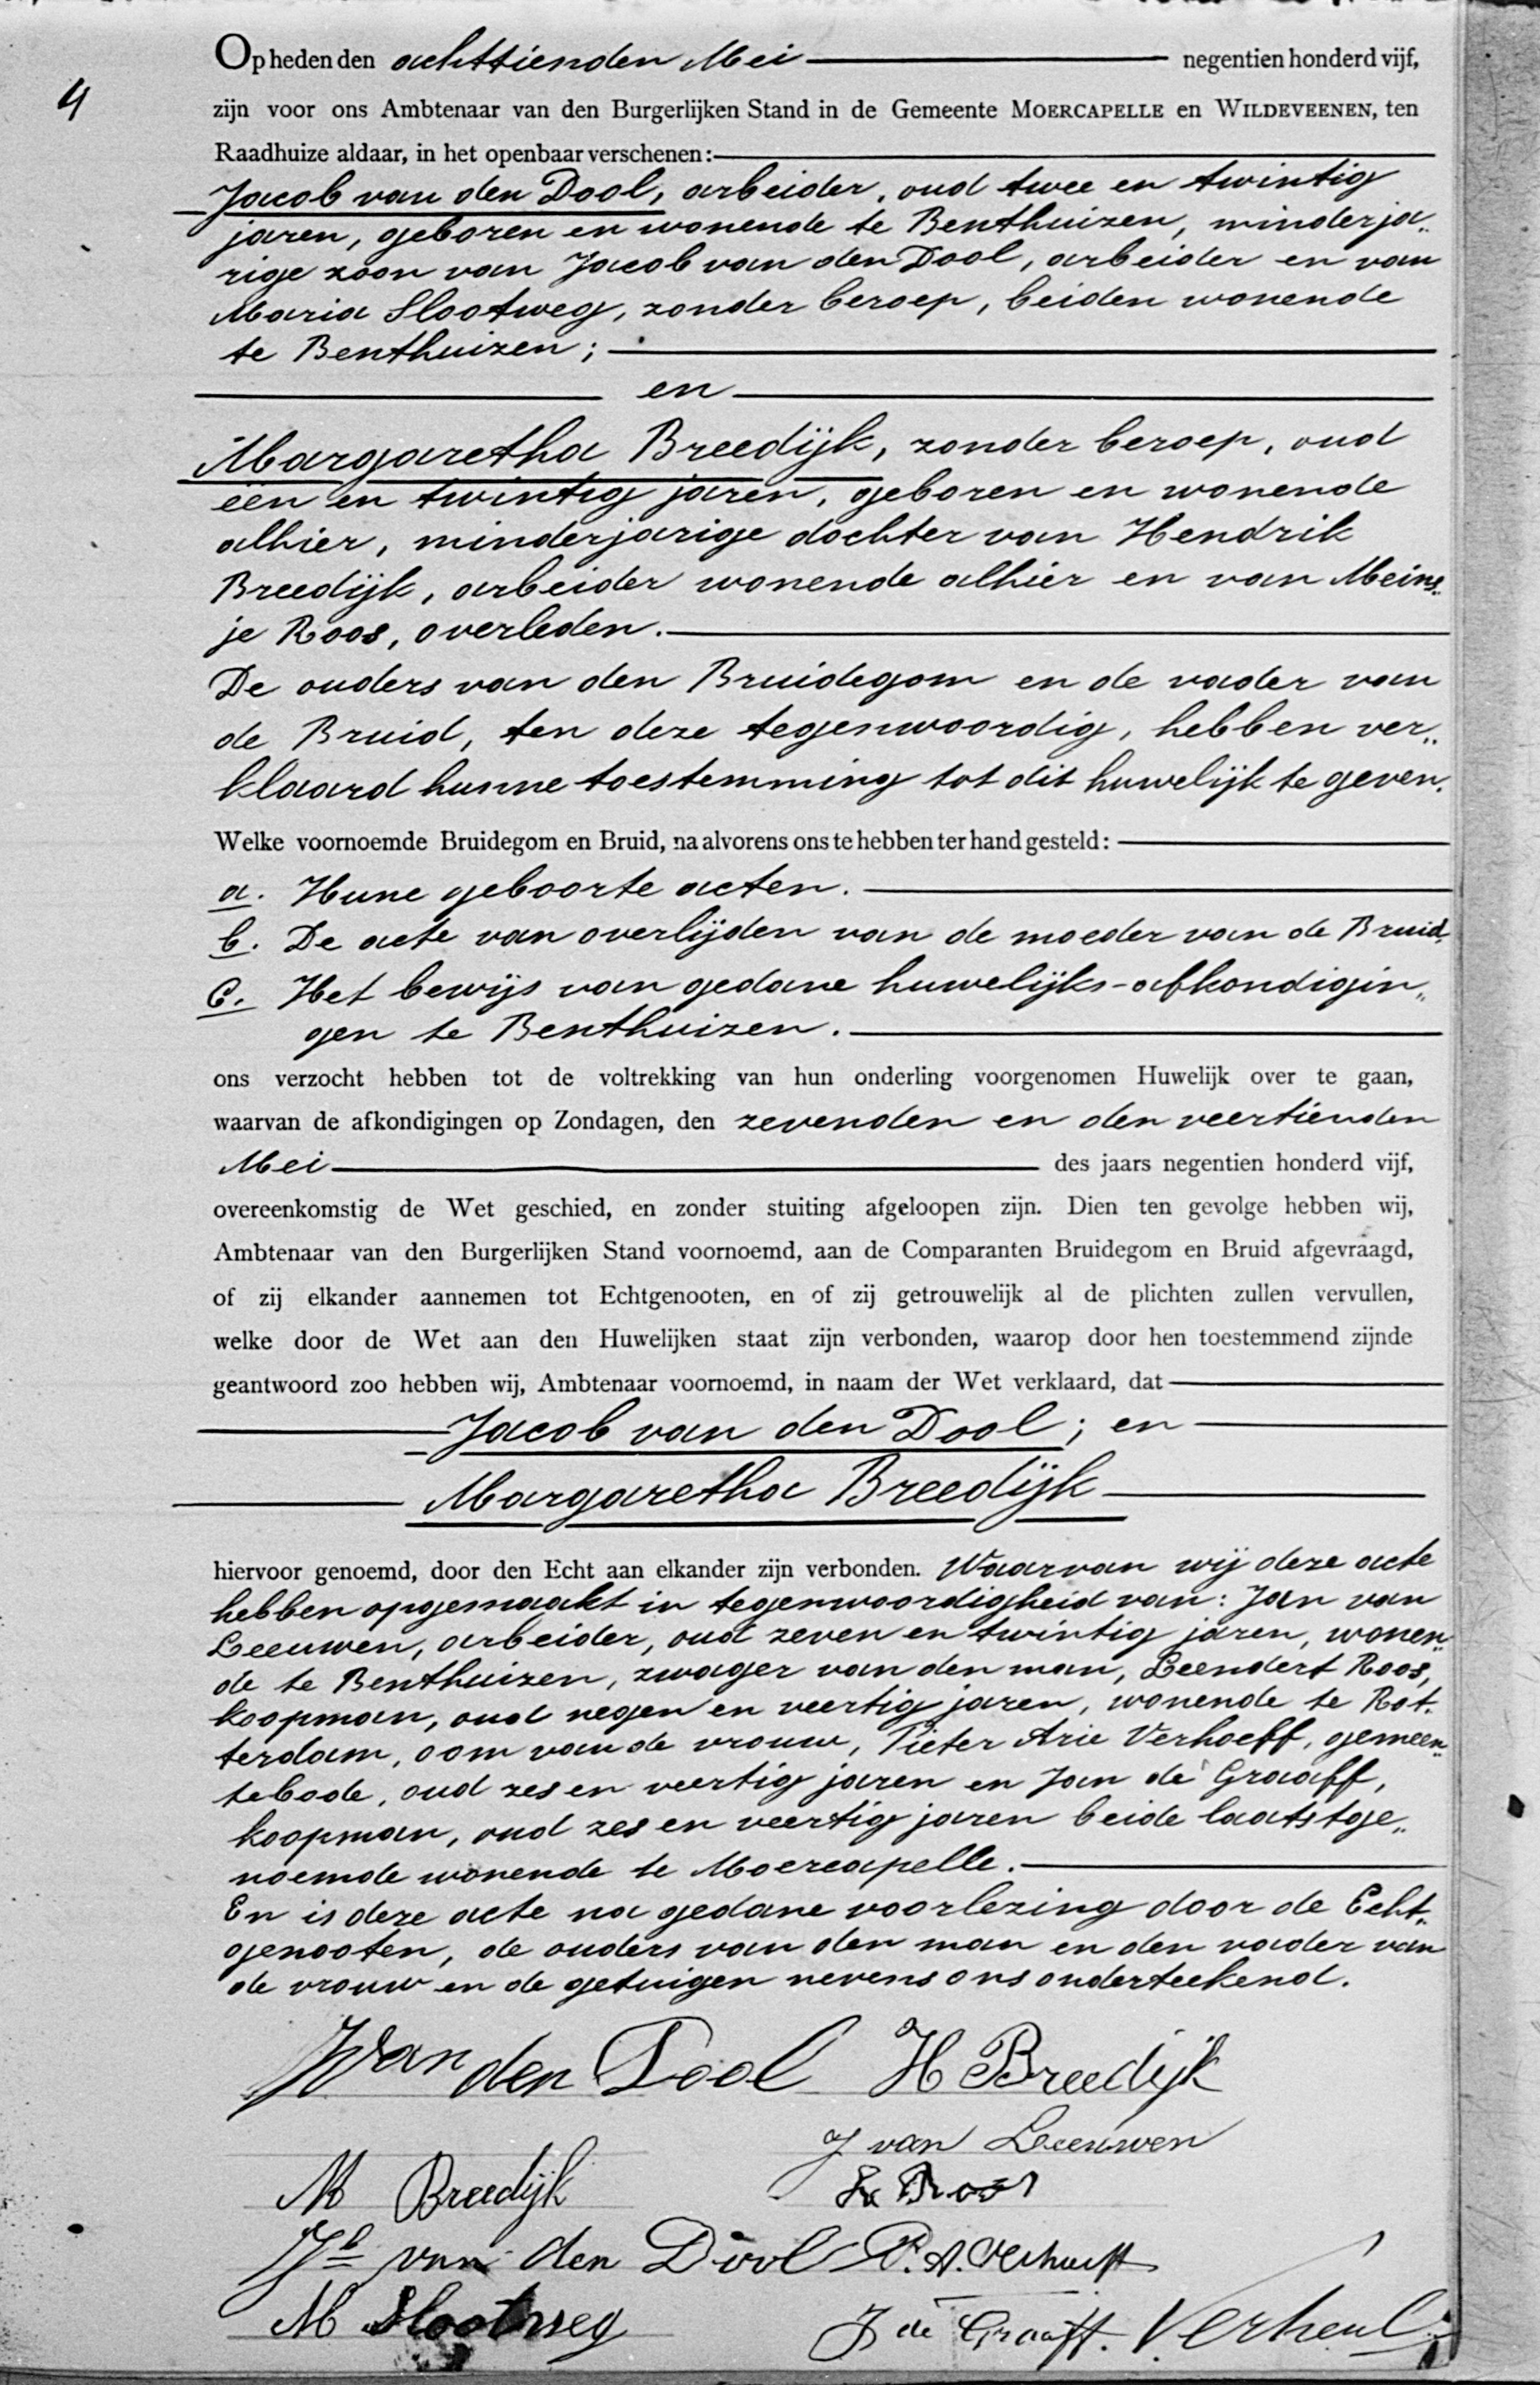 4
Op heden den achttienden Mei negentien honderd vijf,
zijn voor ons Ambtenaar van den Burgerlijken Stand in de Gemeente MOERCAPELLE en WILDEVEENEN, ten
Raadhuize aldaar, in het openbaar verschenen:
Jacob van den Dool, arbeider, oud twee en twintig
jaren, geboren en wonende te Benthuizen, minderja„
rige zoon van Jacob van den Dool, arbeider en van
Maria Slootweg, zonder beroep, beiden wonende
te Benthuizen;
en
Margaretha Breedijk, zonder beroep, oud
een en twintig jaren, geboren en wonende
alhier, minderjarige dochter van Hendrik
Breedijk, arbeider wonende alhier en van Meins„
je Roos, overleden.
De ouders van den Bruidegom en de vader van
de Bruid, ten deze tegenwoordig, hebben ver„
klaard hunne toestemming tot dit huwelijk te geven.
Welke voornoemde Bruidegom en Bruid, na alvorens ons te hebben ter hand gesteld:
a. Hune geboorte acten.
b. De acte van overlijden van de moeder van de Bruid.
c. Het bewijs van gedane huwelijks-afkondigin„
gen te Benthuizen.
ons verzocht hebben tot de voltrekking van hun onderling voorgenomen Huwelijk over te gaan,
waarvan de afkondigingen op Zondagen, den zevenden en den veertienden
Mei des jaars negentien honderd vijf,
overeenkomstig de Wet geschied, en zonder stuiting afgeloopen zijn. Dien ten gevolge hebben wij,
Ambtenaar van den Burgerlijken Stand voornoemd, aan de Comparanten Bruidegom en Bruid afgevraagd,
of zij elkander aannemen tot Echtgenooten, en of zij getrouwelijk al de plichten zullen vervullen,
welke door de Wet aan den Huwelijken staat zijn verbonden, waarop door hen toestemmend zijnde
geantwoord zoo hebben wij, Ambtenaar voornoemd, in naam der Wet verklaard, dat
Jacob van den Dool; en
Margaretha Breedijk
hiervoor genoemd, door den Echt aan elkander zijn verbonden. Waarvan wij deze acte
hebben opgemaakt in tegenwoordigheid van: Jan van
Leeuwen, arbeider, oud zeven en twintig jaren, wonen„
de te Benthuizen, zwager van den man, Leendert Roos,
koopman, oud negen en veertig jaren, wonende te Rot„
terdam, oom van de vrouw, Pieter Arie Verhoeff, gemeen„
tebode, oud zes en veertig jaren en Jan de Graaff,
koopman, oud zes en veertig jaren beide laatstge„
noemde wonende te Moercapelle.
En is deze acte na gedane voorlezing door de Echt„
genooten, de ouders van den man en den vader van
de vrouw en de getuigen nevens ons onderteekend.
J van den Dool H Breedijk
J van Leeuwen
M Breedijk L Roos
Jb van den Dool P. A. Verhoeff
M Slootweg J de Graaff. Verheul